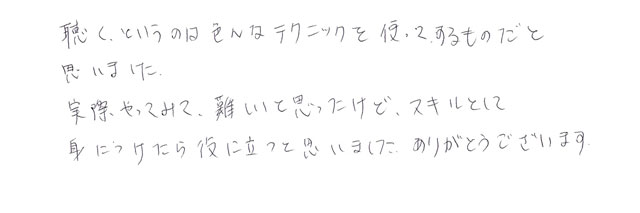 聴く、というのは色んなテクニックを使ってするものだと
思いました。
実際、やってみて、難しいと思ったけど、スキルとして
身につけたら役に立つと思いました。ありがとうございます。